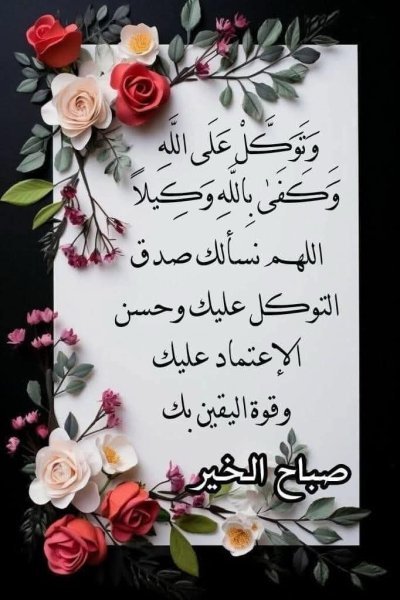 وَتَوَكَّلْ عَلَى اللَّهِ
وَكَفَىٰ بِاللَّهِ وَكِيلاً
اللهم نسألك صدق
التوكل عليك وحسن
الإعتماد عليك
وقوة اليقين بك
صباح الخير